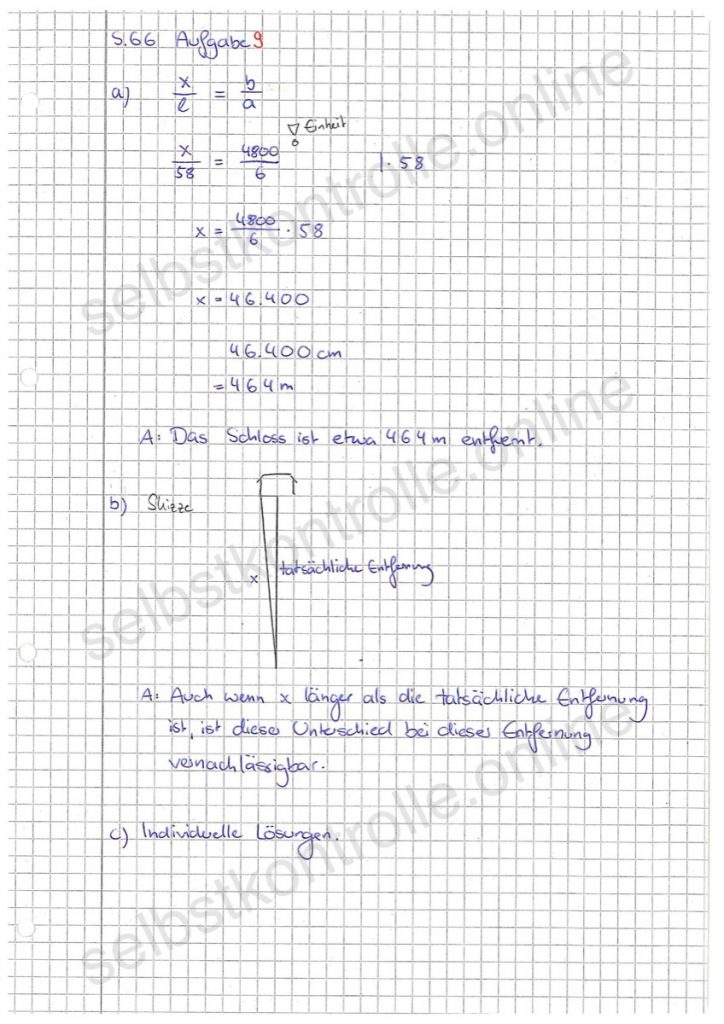 S.66 Aufgabe 9
a) x/l = b/a
▽ Einheit
x/58 = 4800/6 | · 58
x = 4800/6 · 58
x = 46.400
46.400 cm
= 464 m
A: Das Schloss ist etwa 464 m entfernt.
b) Skizze
x tatsächliche Entfernung
A: Auch wenn x länger als die tatsächliche Entfernung
ist, ist dieser Unterschied bei dieser Entfernung
vernachlässigbar.
c) Individuelle Lösungen.
selbstkontrolle.online
selbstkontrolle.online
selbstkontrolle.online